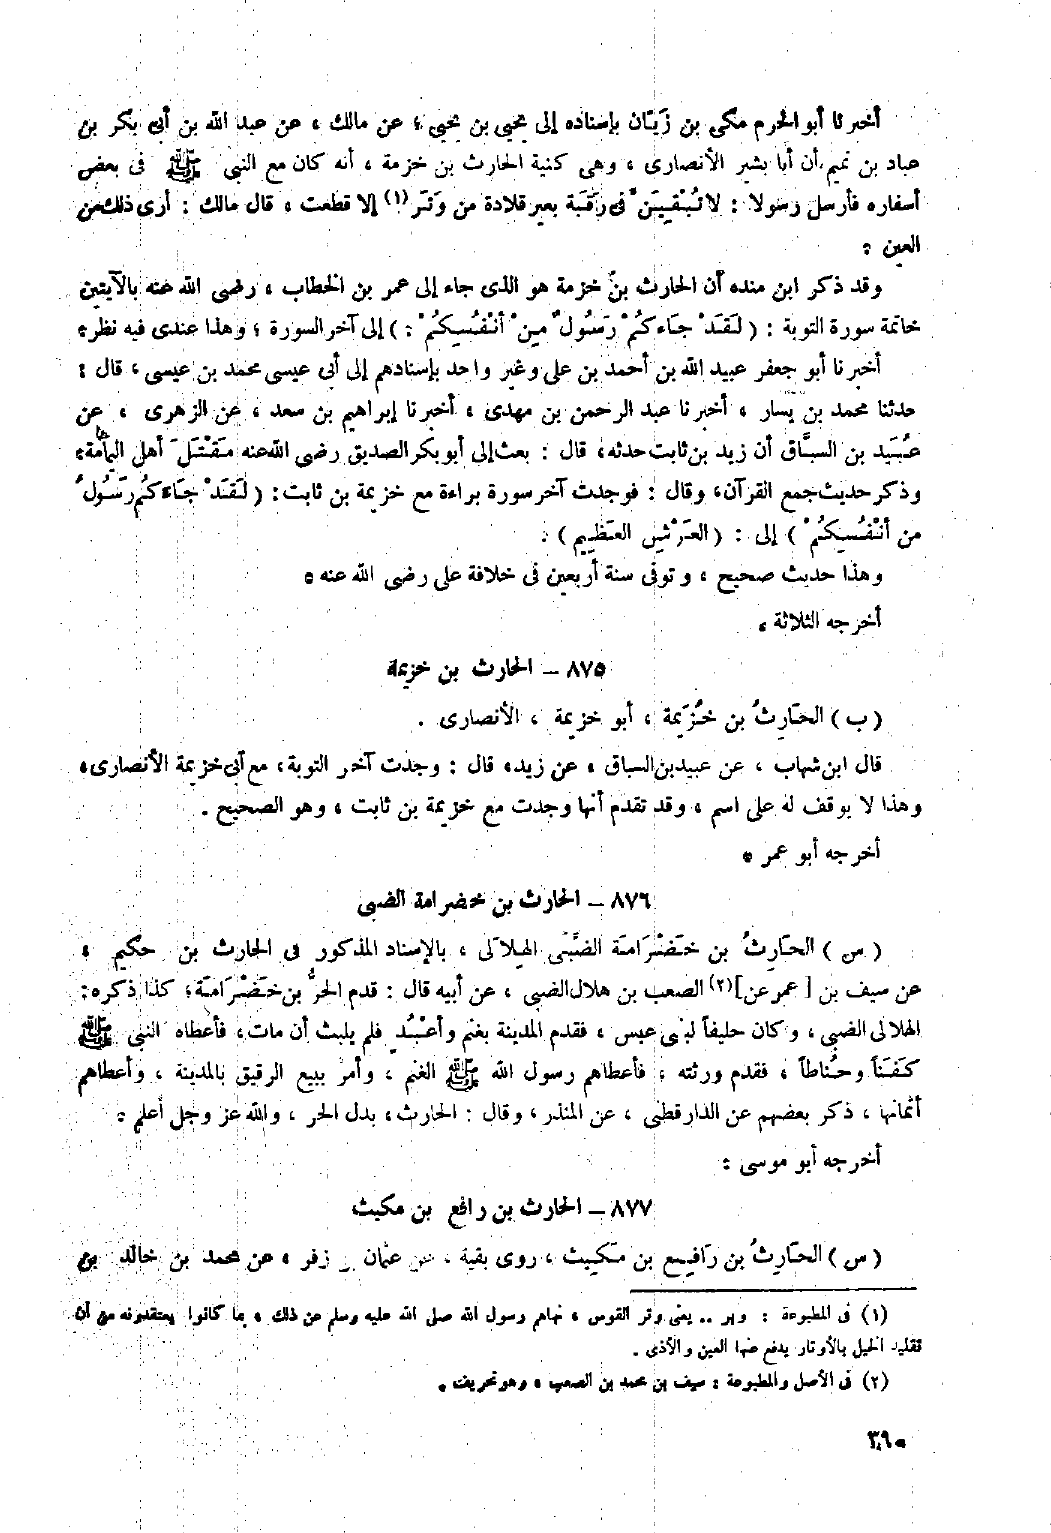 أخبرنا أبو الحرم مكى بن زَيّان بإسناده إلى يحيى بن يحيى ، عن مالك ، عن عبد الله بن أبى بكر بن
عباد بن تميم ، أن أبا بشير الأنصارى ، وهى كنية الحارث بن خزمة ، أنه كان مع النبى ﷺ فى بعض
أسفاره فأرسل رسولا : لا تُبْقَيَنّ فى رَقَبَة بعير قلادة من وَتَر (١) إلا قطعت ، قال مالك : أرى ذلك من
العين .
وقد ذكر ابن منده أن الحارث بنَ خزمة هو الذى جاء إلى عمر بن الخطاب ، رضى الله عنه بالآيتين
خاتمة سورة التوبة : ( لَقَدْ جَاءكُمْ رَسُولٌ مِنْ أنْفُسِكُمْ : ) إلى آخر السورة ؛ وهذا عندى فيه نظر .
أخبرنا أبو جعفر عبيد الله بن أحمد بن على وغير واحد بإسنادهم إلى أبى عيسى محمد بن عيسى ، قال :
حدثنا محمد بن يَسار ، أخبرنا عبد الرحمن بن مهدى ، أخبرنا إبراهيم بن سعد ، عن الزهرى ، عن
عُبَيد بن السبَّاق أن زيد بن ثابت حدثه ، قال : بعث إلى أبو بكر الصديق رضى الله عنه مَقْتَلَ أهل اليمامة ،
وذكر حديث جمع القرآن ، وقال : فوجدت آخر سورة براءة مع خزيمة بن ثابت : ( لَقَدْ جَاءَكُم رَسُولٌ
من أنْفُسِكُمْ ) إلى : ( العَرْشِ العَظِيمِ ) .
وهذا حديث صحيح ، وتوفى سنة أربعين فى خلافة على رضى الله عنه .
أخرجه الثلاثة .
٨٧٥ – الحارث بن خزيمة
( ب ) الحَارِثُ بن خُزَيمة ، أبو خزيمة ، الأنصارى .
قال ابن شهاب ، عن عبيد بن السباق ، عن زيد ، قال : وجدت آخر التوبة ، مع أبى خزيمة الأنصارى ،
وهذا لا يوقف له على اسم ، وقد تقدم أنها وجدت مع خزيمة بن ثابت ، وهو الصحيح .
أخرجه أبو عمر .
٨٧٦ – الحارث بن خضرامة الضبى
( س ) الحَارِثُ بن خَضْرَامَة الضَّبِّى الهِلَالى ، بالإسناد المذكور فى الحارث بن حكيم ،
عن سيف بن [ عمر عن ] (٢) الصعب بن هلال الضبى ، عن أبيه قال : قدم الحرُّ بن خَضْرَامَة ؛ كذا ذكره :
الهلالى الضبى ، وكان حليفاً لبنى عبس ، فقدم المدينة بغنم وأعْبُدٍ فلم يلبث أن مات ، فأعطاه النبى ﷺ
كَفَنَاً وحُناطاً ، فقدم ورثته ، فأعطاهم رسول الله ﷺ الغنم ، وأمر ببيع الرقيق بالمدينة ، وأعطاهم
أثمانها ، ذكر بعضهم عن الدارقطنى ، عن المنذر ، وقال : الحارث ، بدل الحر ، والله عز وجل أعلم .
أخرجه أبو موسى .
٨٧٧ – الحارث بن رافع بن مكيث
( س ) الحَارِثُ بن رَافِع بن مَكِيث ، روى بقية ، عن عثمان بن زفر ، عن محمد بن خالد بن
(١) فى المطبوعة : وبر .. يعنى وتر القوس ، نهاهم رسول الله صلى الله عليه وسلم عن ذلك ، بما كانوا يعتقدونه من أن
تقليد الخيل بالأوتار يدفع عنها العين والأذى .
(٢) فى الأصل والمطبوعة : سيف بن محمد بن الصعب ، وهو تحريف .
٣٩٠